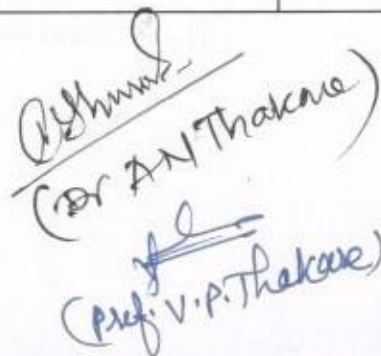 (Dr A N Thakare)
(Prof. V.P. Thakare)